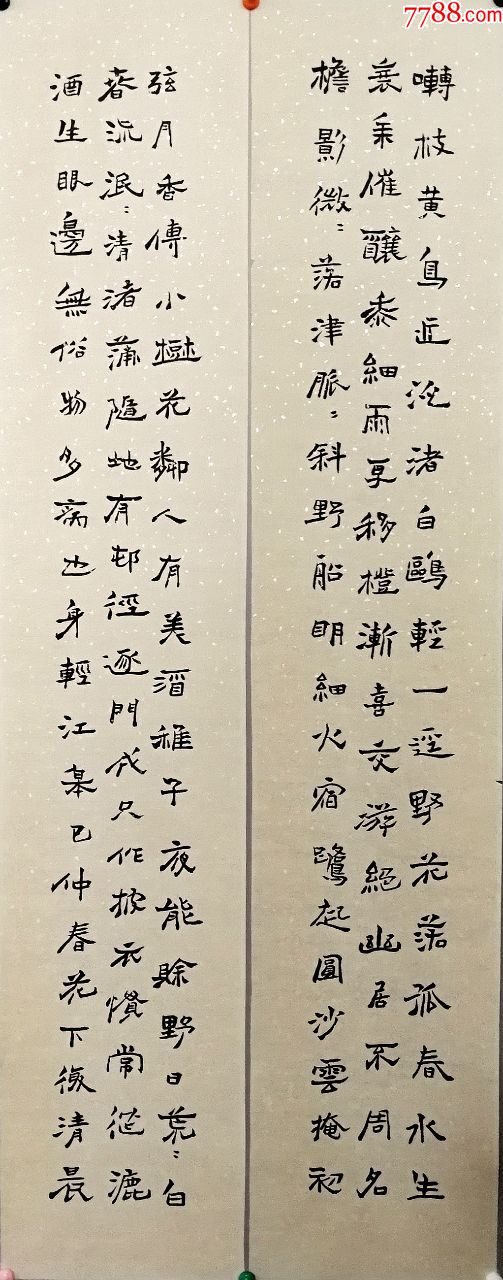 7788.com
囀枝黃鳥近泛渚白鷗輕一逕野花落孤春水生
衰年催釀黍細雨更移橙漸喜交游絕幽居不周名
檐影微〻落津脈〻斜野船明細火宿鷺起圓沙雲掩初
弦月香傳小樹花鄰人有美酒稚子夜能賒野日荒〻白
春流泯〻清渚蒲隨地有邨徑逐門成只作披衣慣常從漉
酒生眼邊無俗物多病也身輕江皋已仲春花下復清晨